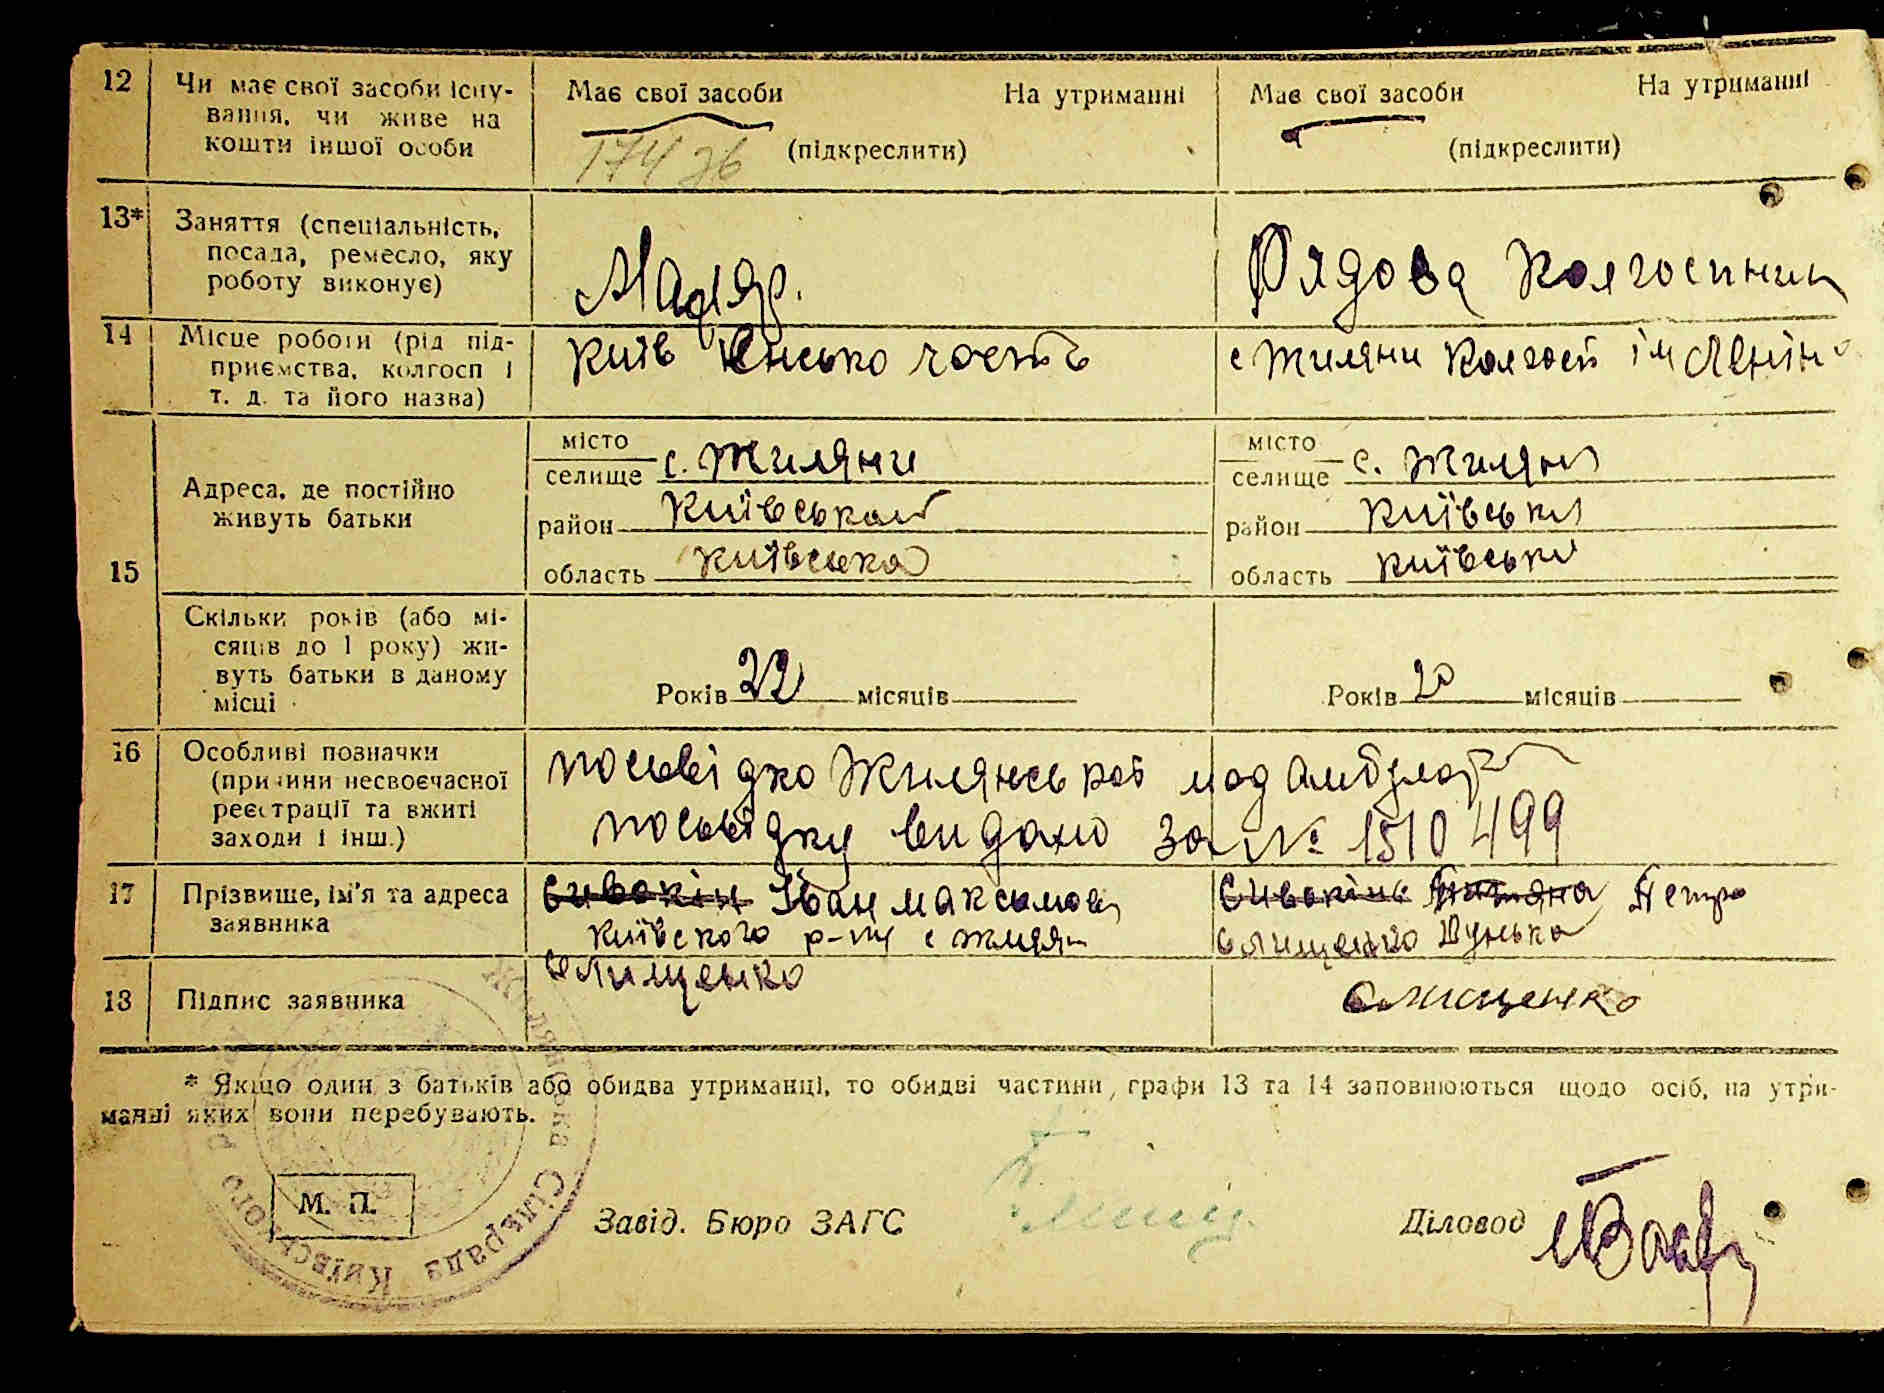 12 Чи має свої засоби існу-
вання, чи живе на
кошти іншої особи
Має свої засоби На утриманні
(підкреслити)
174
Має свої засоби На утриманні
(підкреслити)
13* Заняття (спеціальність,
посада, ремесло, яку
роботу виконує)
Маляр.
Рядова Колгоспниця
14 Місце роботи (рід під-
приємства, колгосп і
т. д. та його назва)
Київ часть
с Жиляни Колгосп ім Леніна
15
Адреса, де постійно
живуть батьки
місто
селище с. Жиляни
район Київської
область Київська
місто
селище с. Жиляни
район Київськи
область Київськи
Скільки років (або мі-
сяців до 1 року) жи-
вуть батьки в даному
місці
Років 22 місяців
Років 20 місяців
16 Особливі позначки
(причини несвоєчасної
реєстрації та вжиті
заходи і інш.)
посьвідка Жилянської
посьвідку видано за № 1510499
17 Прізвище, ім'я та адреса
заявника
Сивокінь Іван максимов
Київского р-ну с жиляни
Сивокінь Петро
Слищенко Дунька
18 Підпис заявника
Слищенко
Слищенко
* Якщо один з батьків або обидва утриманці, то обидві частини, графи 13 та 14 заповнюються щодо осіб, на утри-
манні яких вони перебувають.
Жилянська Сільрада Київського
М. П.
Завід. Бюро ЗАГС
Діловод